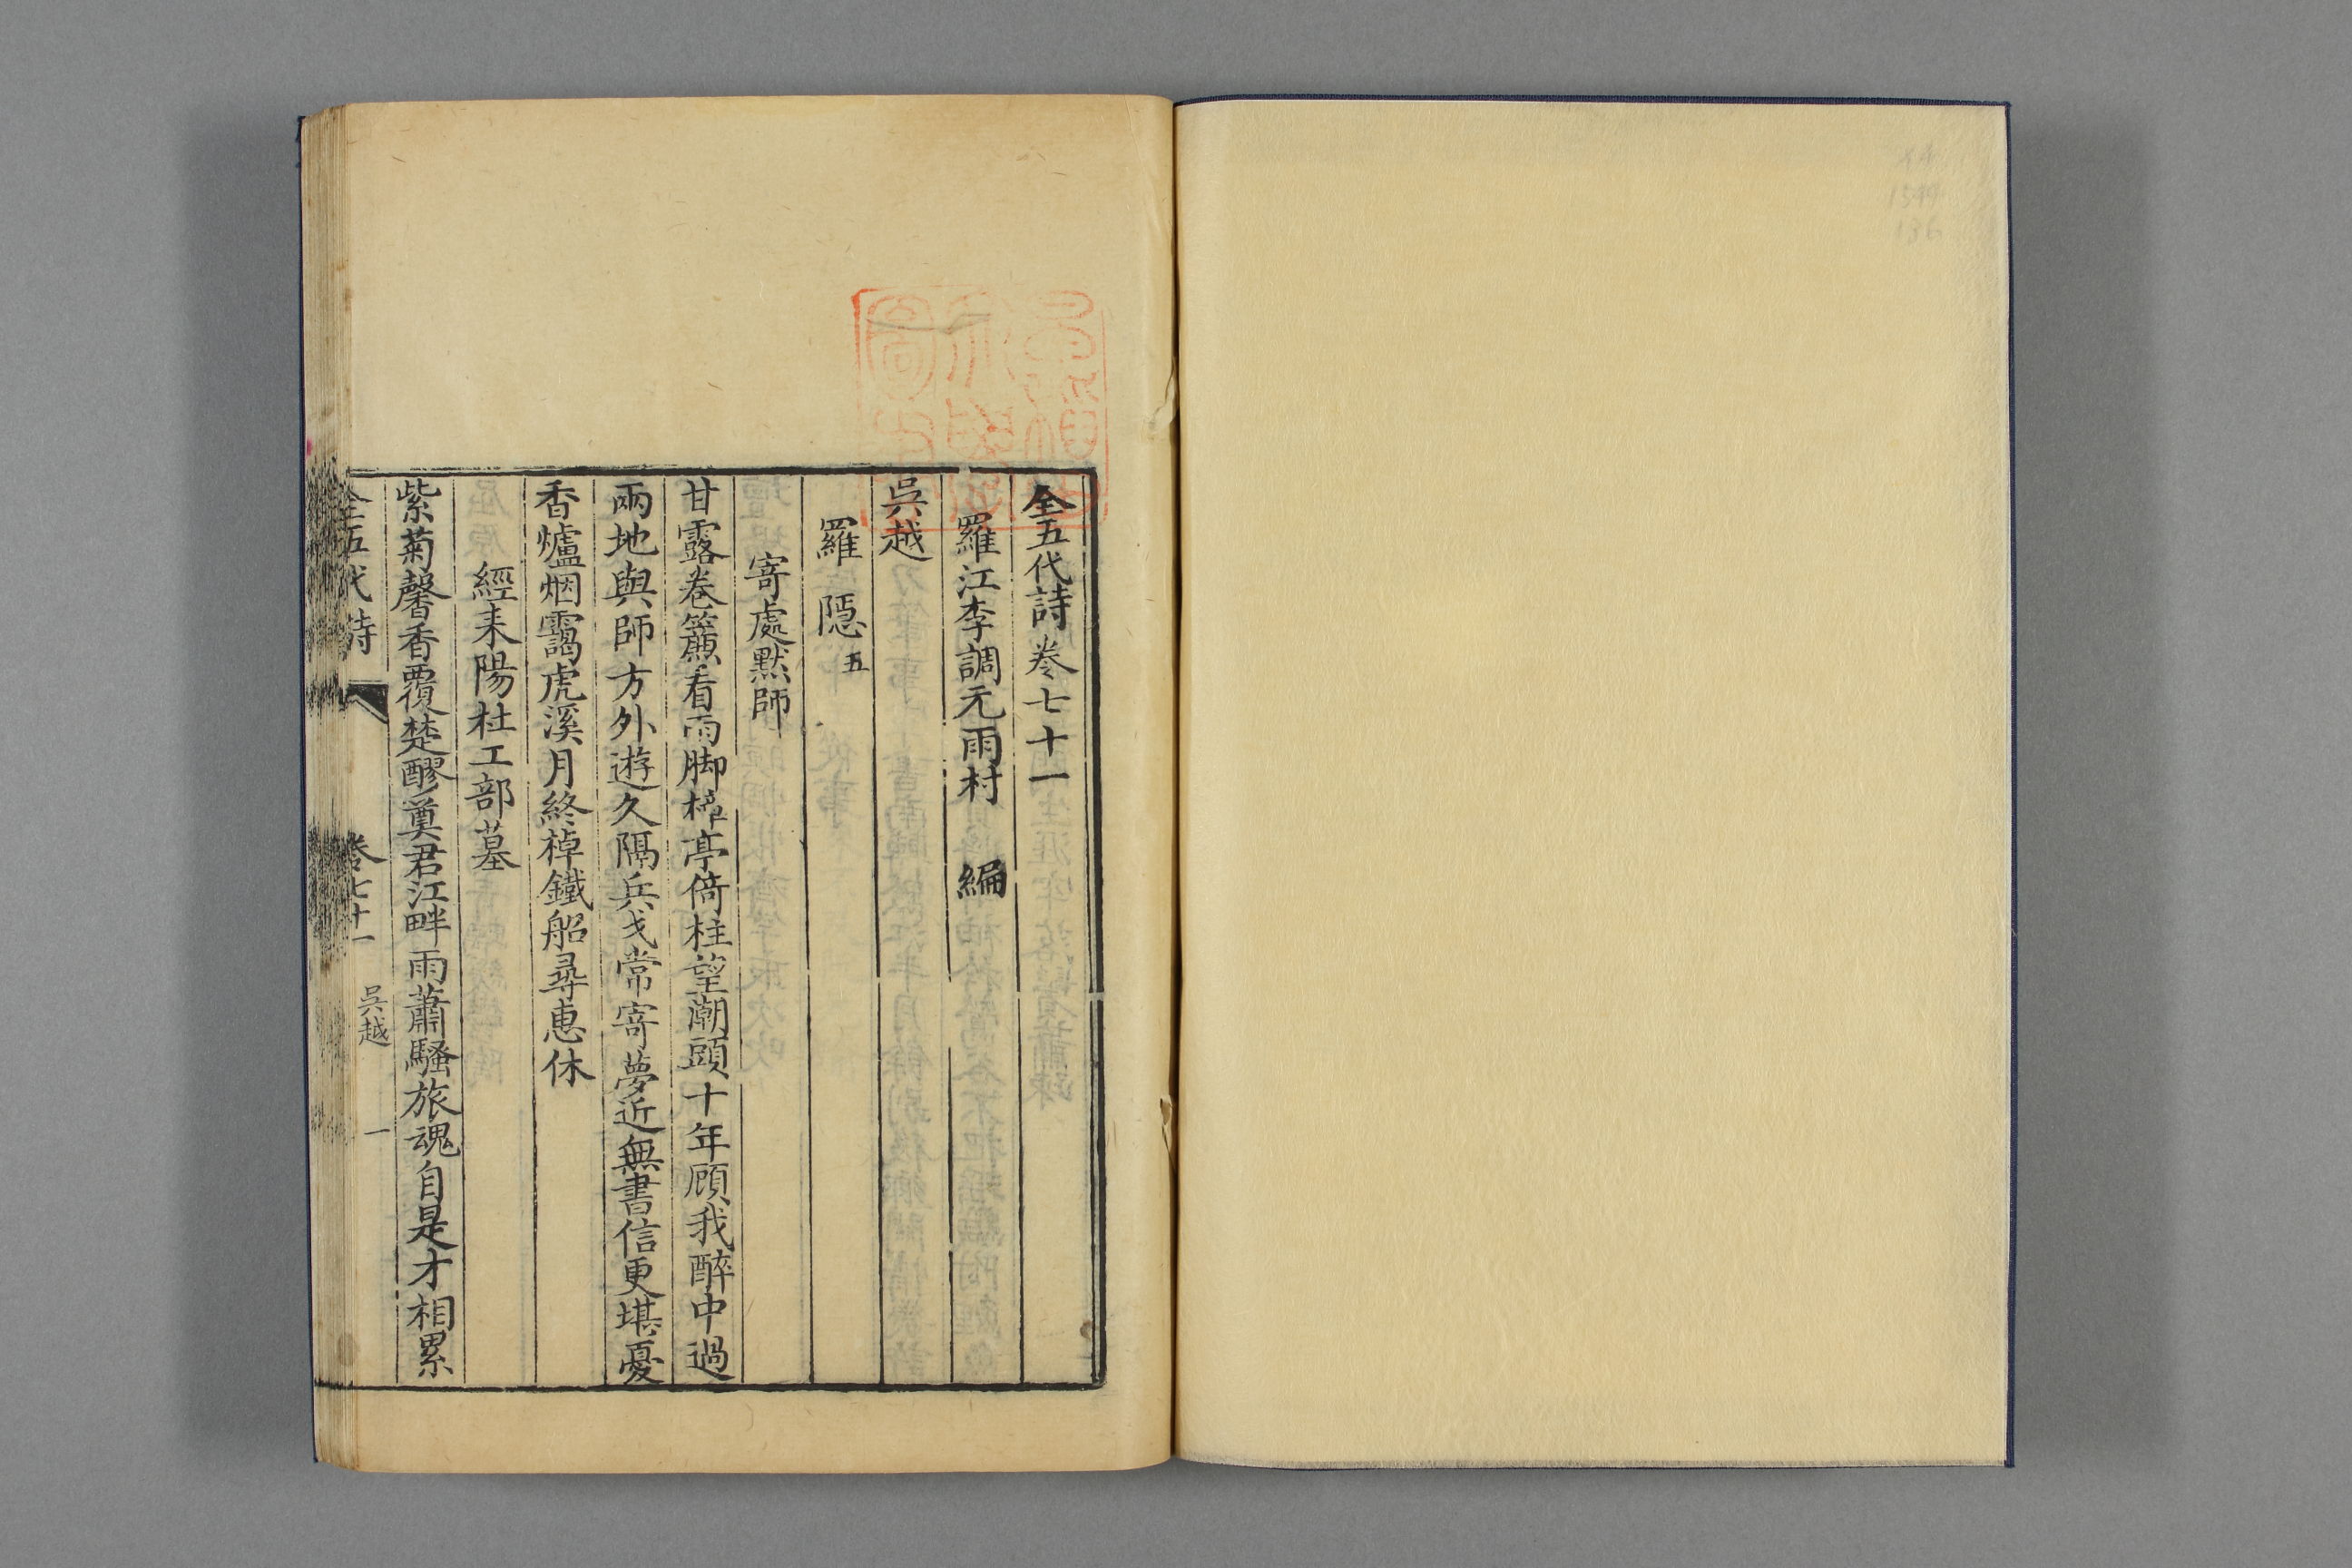 全五代詩卷七十一
羅江李調元雨村 編
吳越
羅 隱 五
寄處默師
甘露卷簾看雨脚樟亭倚柱望潮頭十年顧我醉中過
兩地與師方外遊久隔兵戈常寄夢近無書信更堪憂
香爐烟靄虎溪月終棹鐵船尋惠休
經耒陽杜工部墓
紫菊馨香覆楚醪奠君江畔雨蕭騷旅魂自是才相累
全五代詩 卷七十一 吳越 一